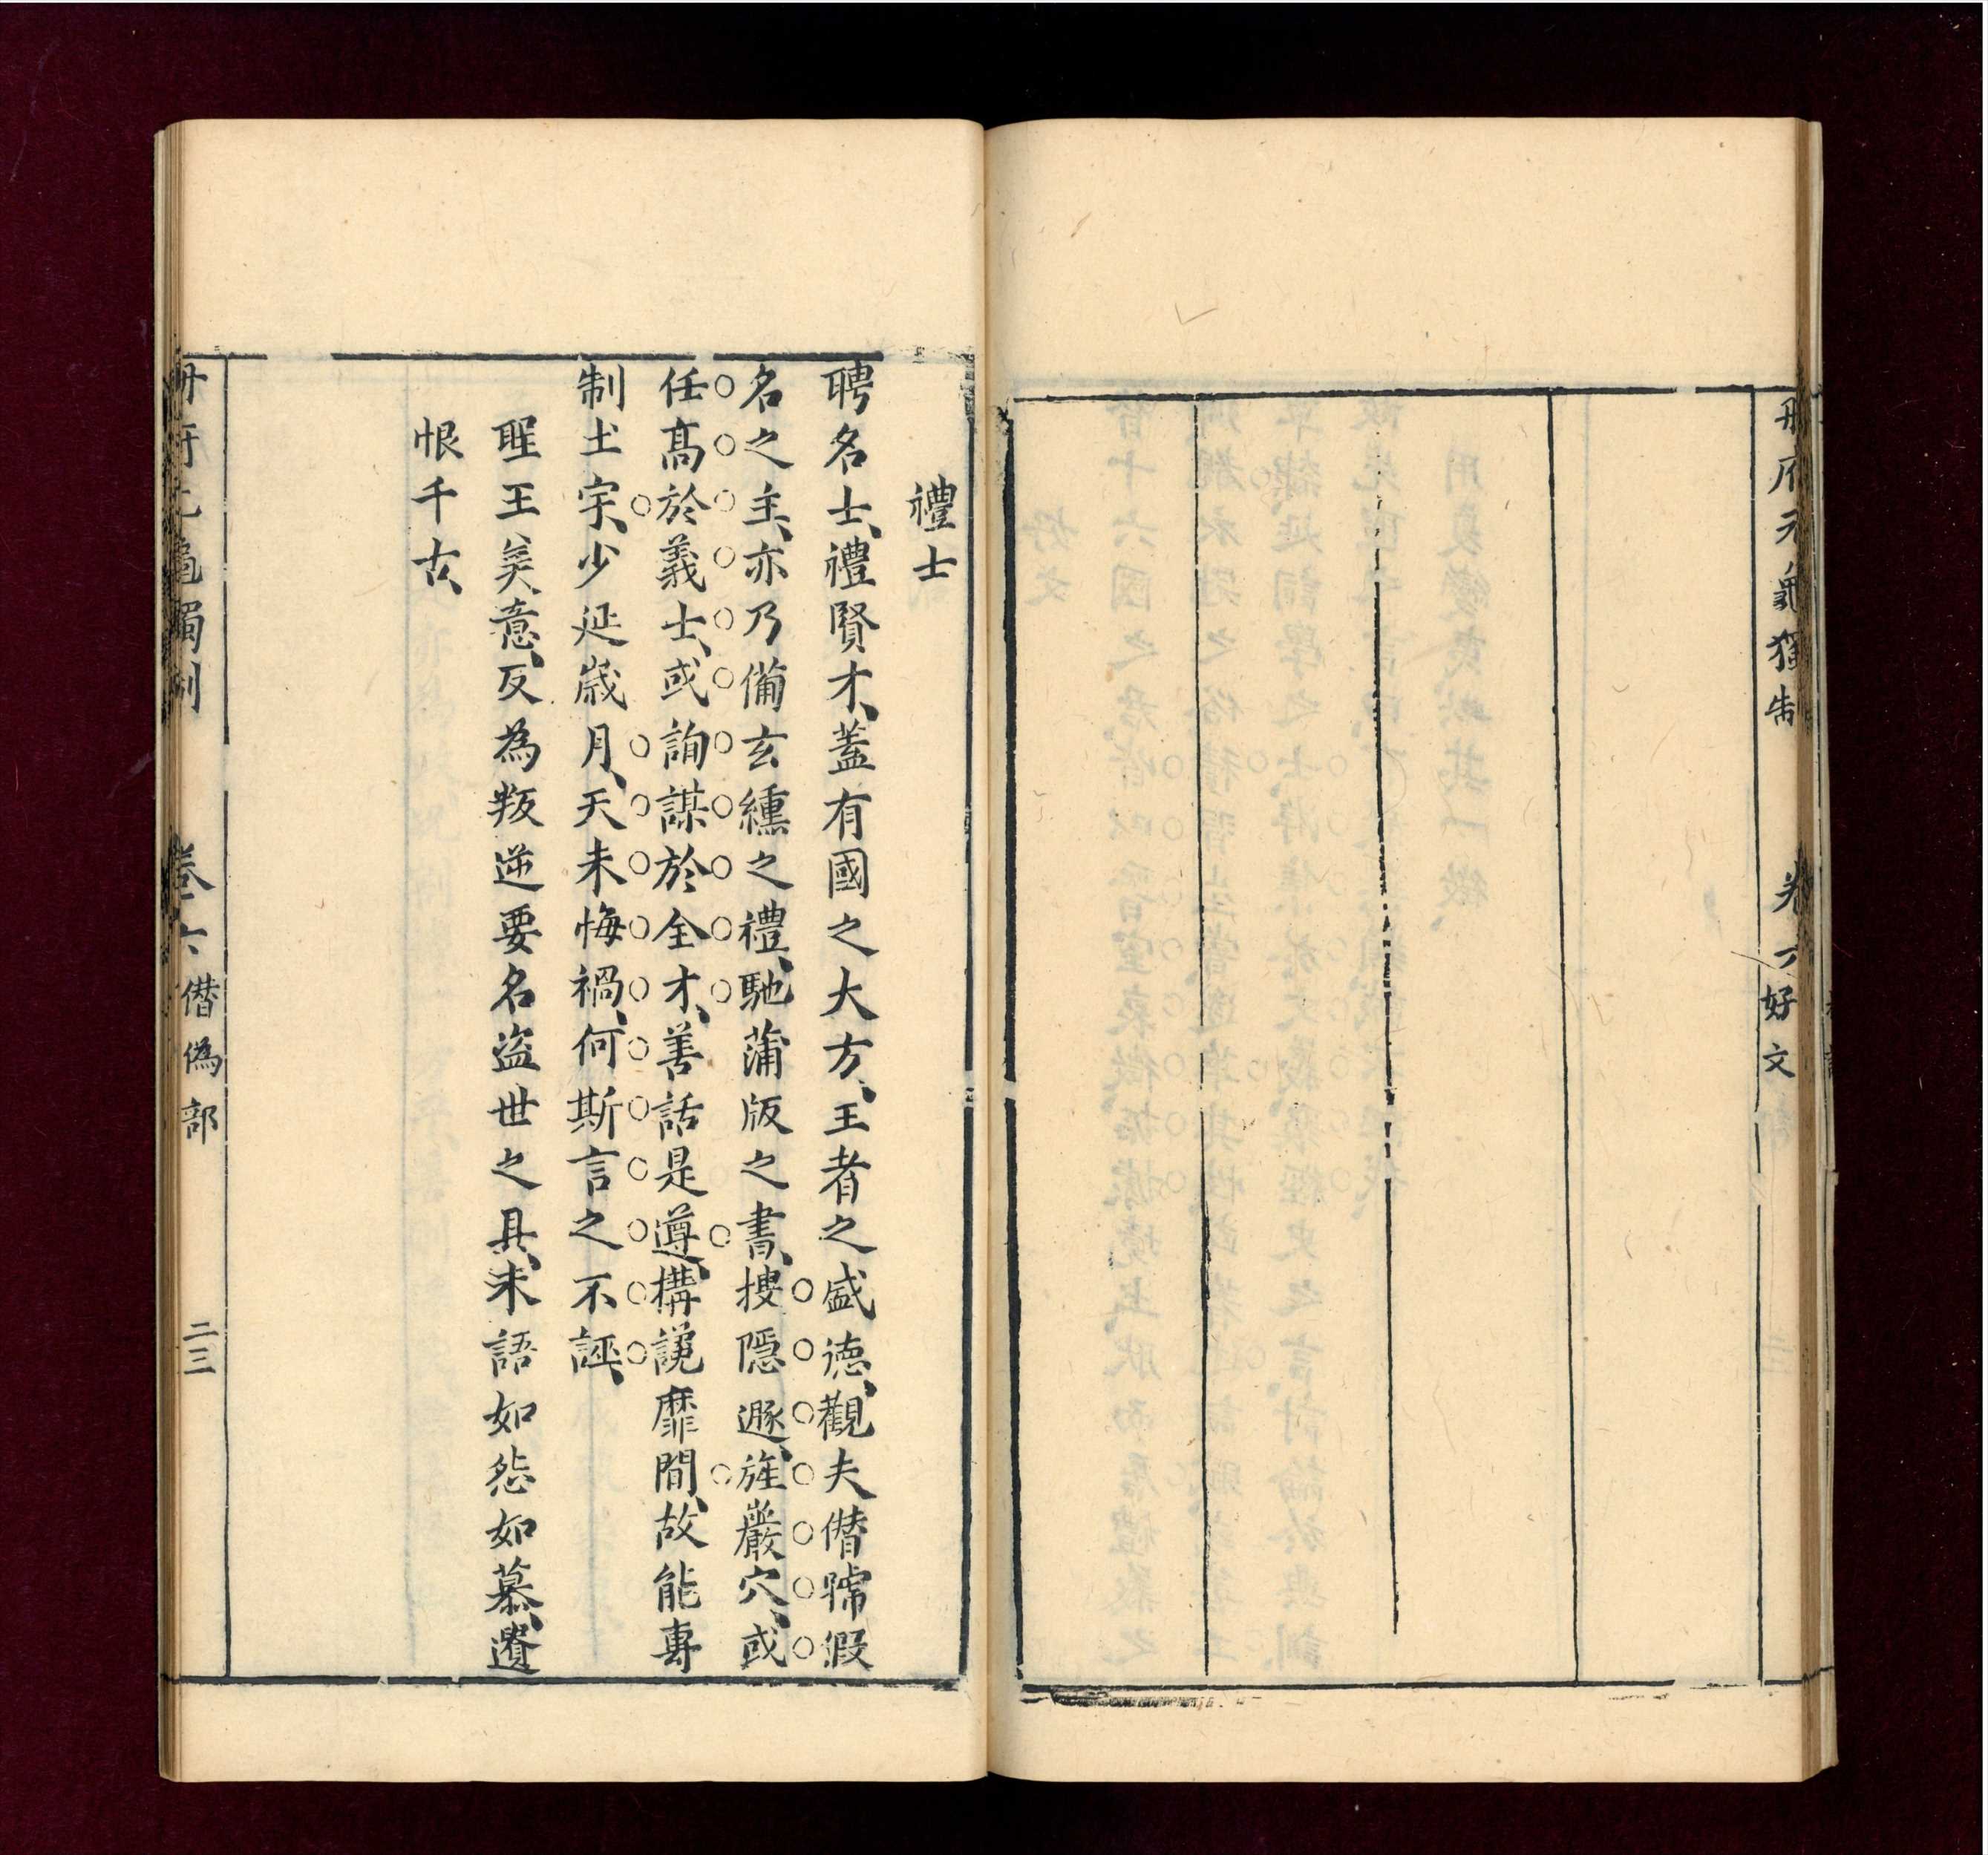 册府元龜獨制 卷六 好文
禮士
聘名士、禮賢才、蓋有國之大方、王者之盛德、觀夫僭號假
名之主、亦乃備玄纁之禮、馳蒲版之書、搜隱遯、旌巖穴、或
任高於義士、或詢謀於全才、善話是遵、構說靡間、故能專
制土宇、少延歲月、天未悔禍、何斯言之不誣、
聖王美意、反為叛逆要名盜世之具、未語如怨如慕、遺
恨千古、
册府元龜獨制 卷六 僭偽部 二三